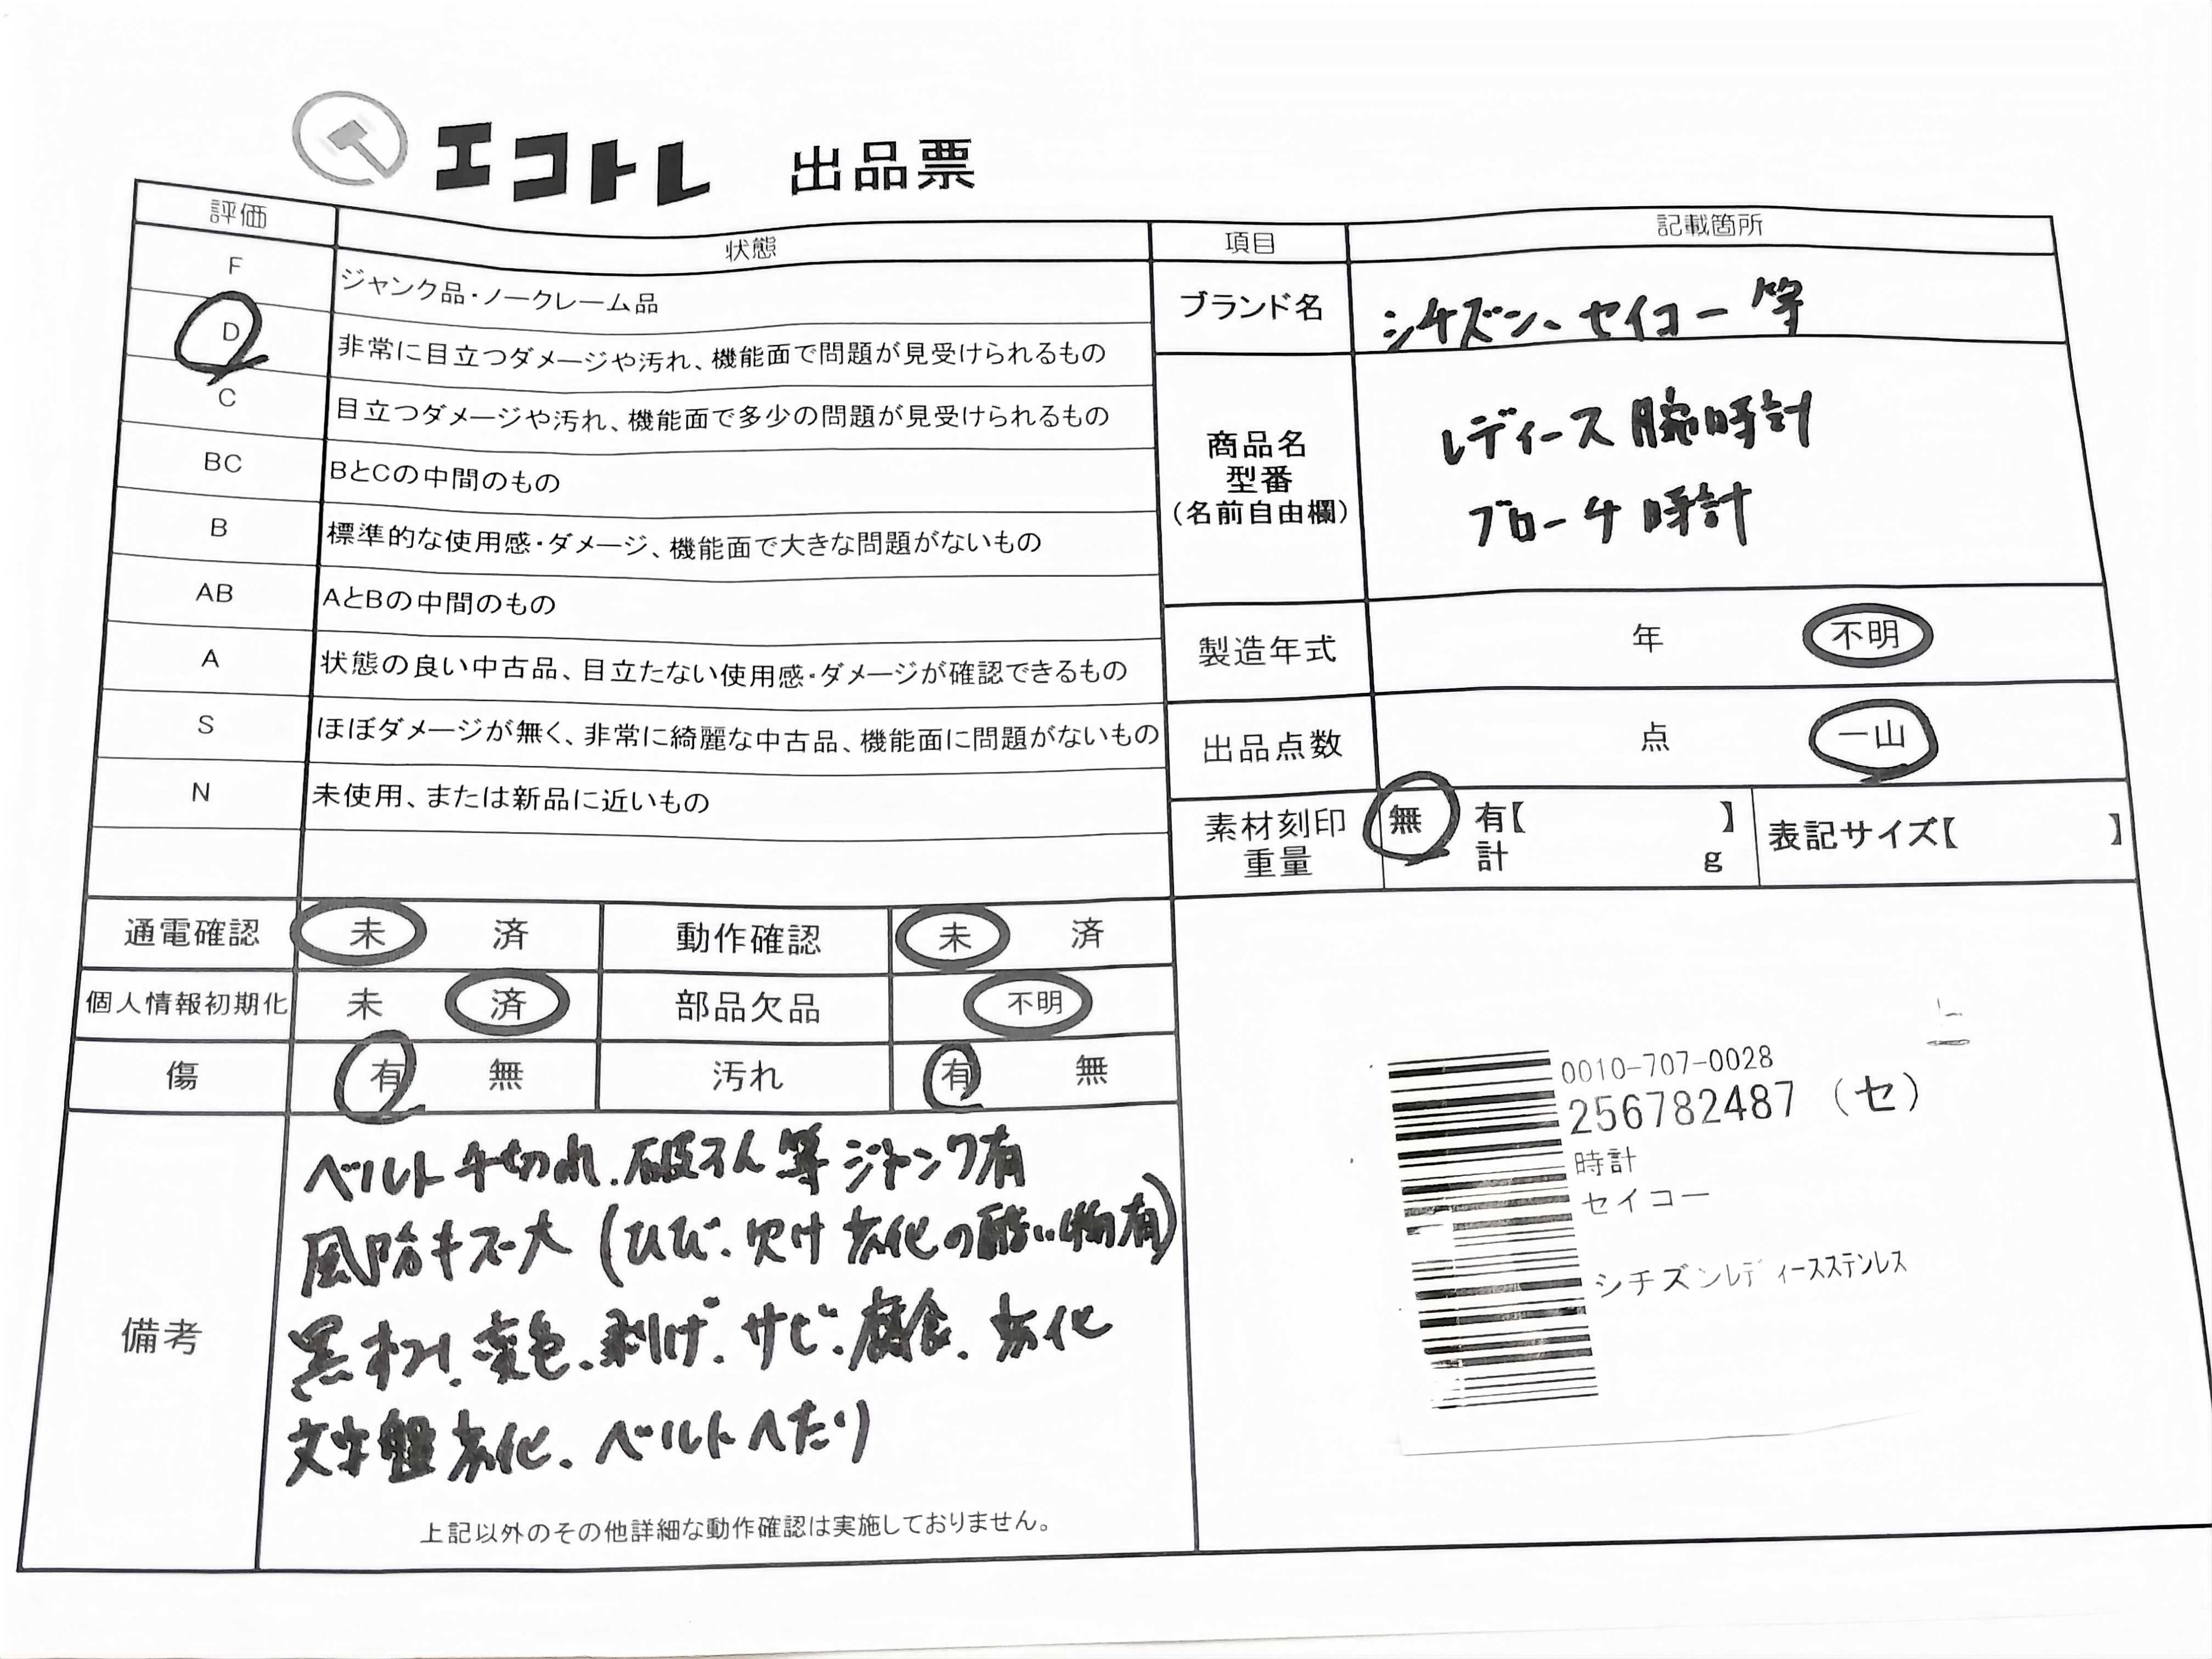 エコトレ 出品票
評価 状態
F ジャンク品・ノークレーム品
D 非常に目立つダメージや汚れ、機能面で問題が見受けられるもの
C 目立つダメージや汚れ、機能面で多少の問題が見受けられるもの
BC BとCの中間のもの
B 標準的な使用感・ダメージ、機能面で大きな問題がないもの
AB AとBの中間のもの
A 状態の良い中古品、目立たない使用感・ダメージが確認できるもの
S ほぼダメージが無く、非常に綺麗な中古品、機能面に問題がないもの
N 未使用、または新品に近いもの
項目 記載箇所
ブランド名 シチズン、セイコー等
商品名
型番
(名前自由欄)
レディース腕時計
ブローチ時計
製造年式 年 不明
出品点数 点 一山
素材刻印 無 有【 】 表記サイズ【 】
重量 計 g
通電確認 未 済 動作確認 未 済
個人情報初期化 未 済 部品欠品 不明
傷 有 無 汚れ 有 無
備考
ベルト千切れ、破損等ジャンク有
風防キズ大(ひび、欠け劣化の酷い物有)
黒ずみ、変色、剥げ、サビ、腐食、劣化
文字盤劣化、ベルトへたり
上記以外のその他詳細な動作確認は実施しておりません。
0010-707-0028
256782487 (セ)
時計
セイコー
シチズンレディースステンレス